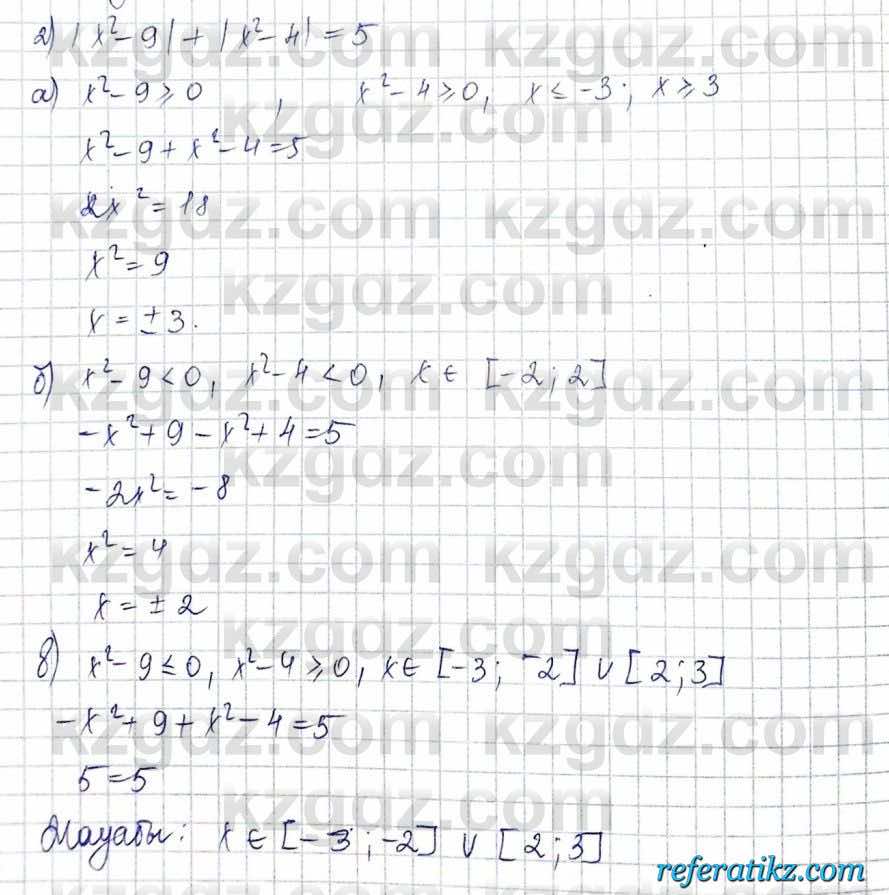 2) |x²-9|+|x²-4|=5
а) x²-9⩾0, x²-4⩾0, x≤-3; x⩾3
x²-9+x²-4=5
2x²=18
x²=9
x=±3.
б) x²-9<0, x²-4<0, x∈ [-2;2]
-x²+9-x²+4=5
-2x²=-8
x²=4
x=±2
в) x²-9≤0, x²-4⩾0, x∈[-3;-2] ∪ [2;3]
-x²+9+x²-4=5
5=5
Жауабы: x∈[-3;-2] ∪ [2;3]
kzgdz.com
referatikz.com